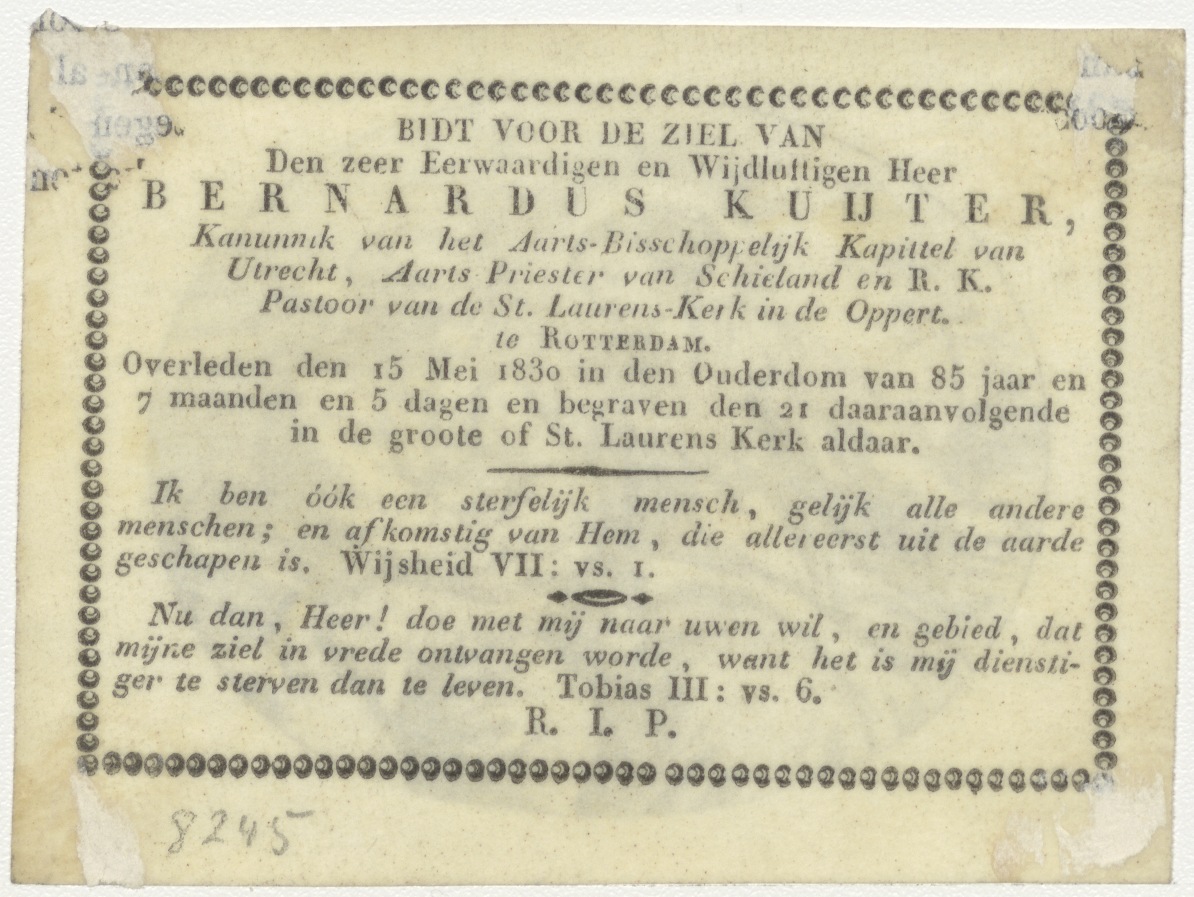 BIDT VOOR DE ZIEL VAN
Den zeer Eerwaardigen en Wijdluftigen Heer
BERNARDUS KUIJTER,
Kanunnik van het Aarts-Bisschoppelijk Kapittel van
Utrecht, Aarts Priester van Schieland en R. K.
Pastoor van de St. Laurens-Kerk in de Oppert.
te ROTTERDAM.
Overleden den 15 Mei 1830 in den Ouderdom van 85 jaar en
7 maanden en 5 dagen en begraven den 21 daaraanvolgende
in de groote of St. Laurens Kerk aldaar.
Ik ben óók een sterfelijk mensch, gelijk alle andere
menschen; en afkomstig van Hem, die allereerst uit de aarde
geschapen is. Wijsheid VII: vs. 1.
Nu dan, Heer! doe met mij naar uwen wil, en gebied, dat
mijne ziel in vrede ontvangen worde, want het is mij diensti-
ger te sterven dan te leven. Tobias III: vs. 6.
R. I. P.
8245